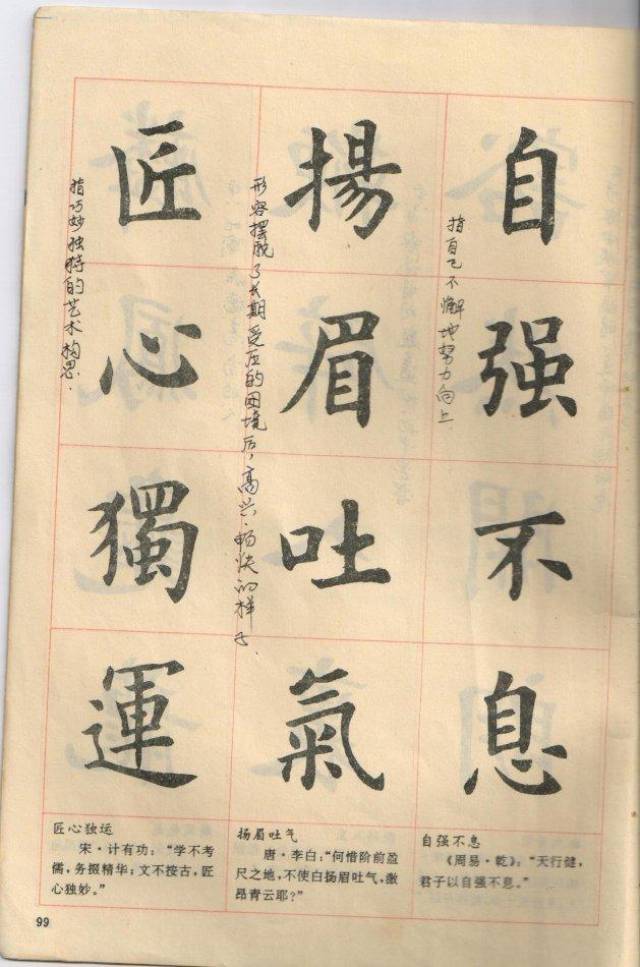 自强不息
指自己不懈地努力向上
揚眉吐氣
形容摆脱了长期受压的困境后，高兴、畅快的样子.
匠心獨運
指巧妙独特的艺术构思.
自强不息
《周易·乾》：“天行健，
君子以自强不息。”
扬眉吐气
唐·李白：“何惜阶前盈
尺之地，不使白扬眉吐气，激
昂青云耶？”
匠心独运
宋·计有功：“学不考
儒，务掇精华；文不按古，匠
心独妙。”
99